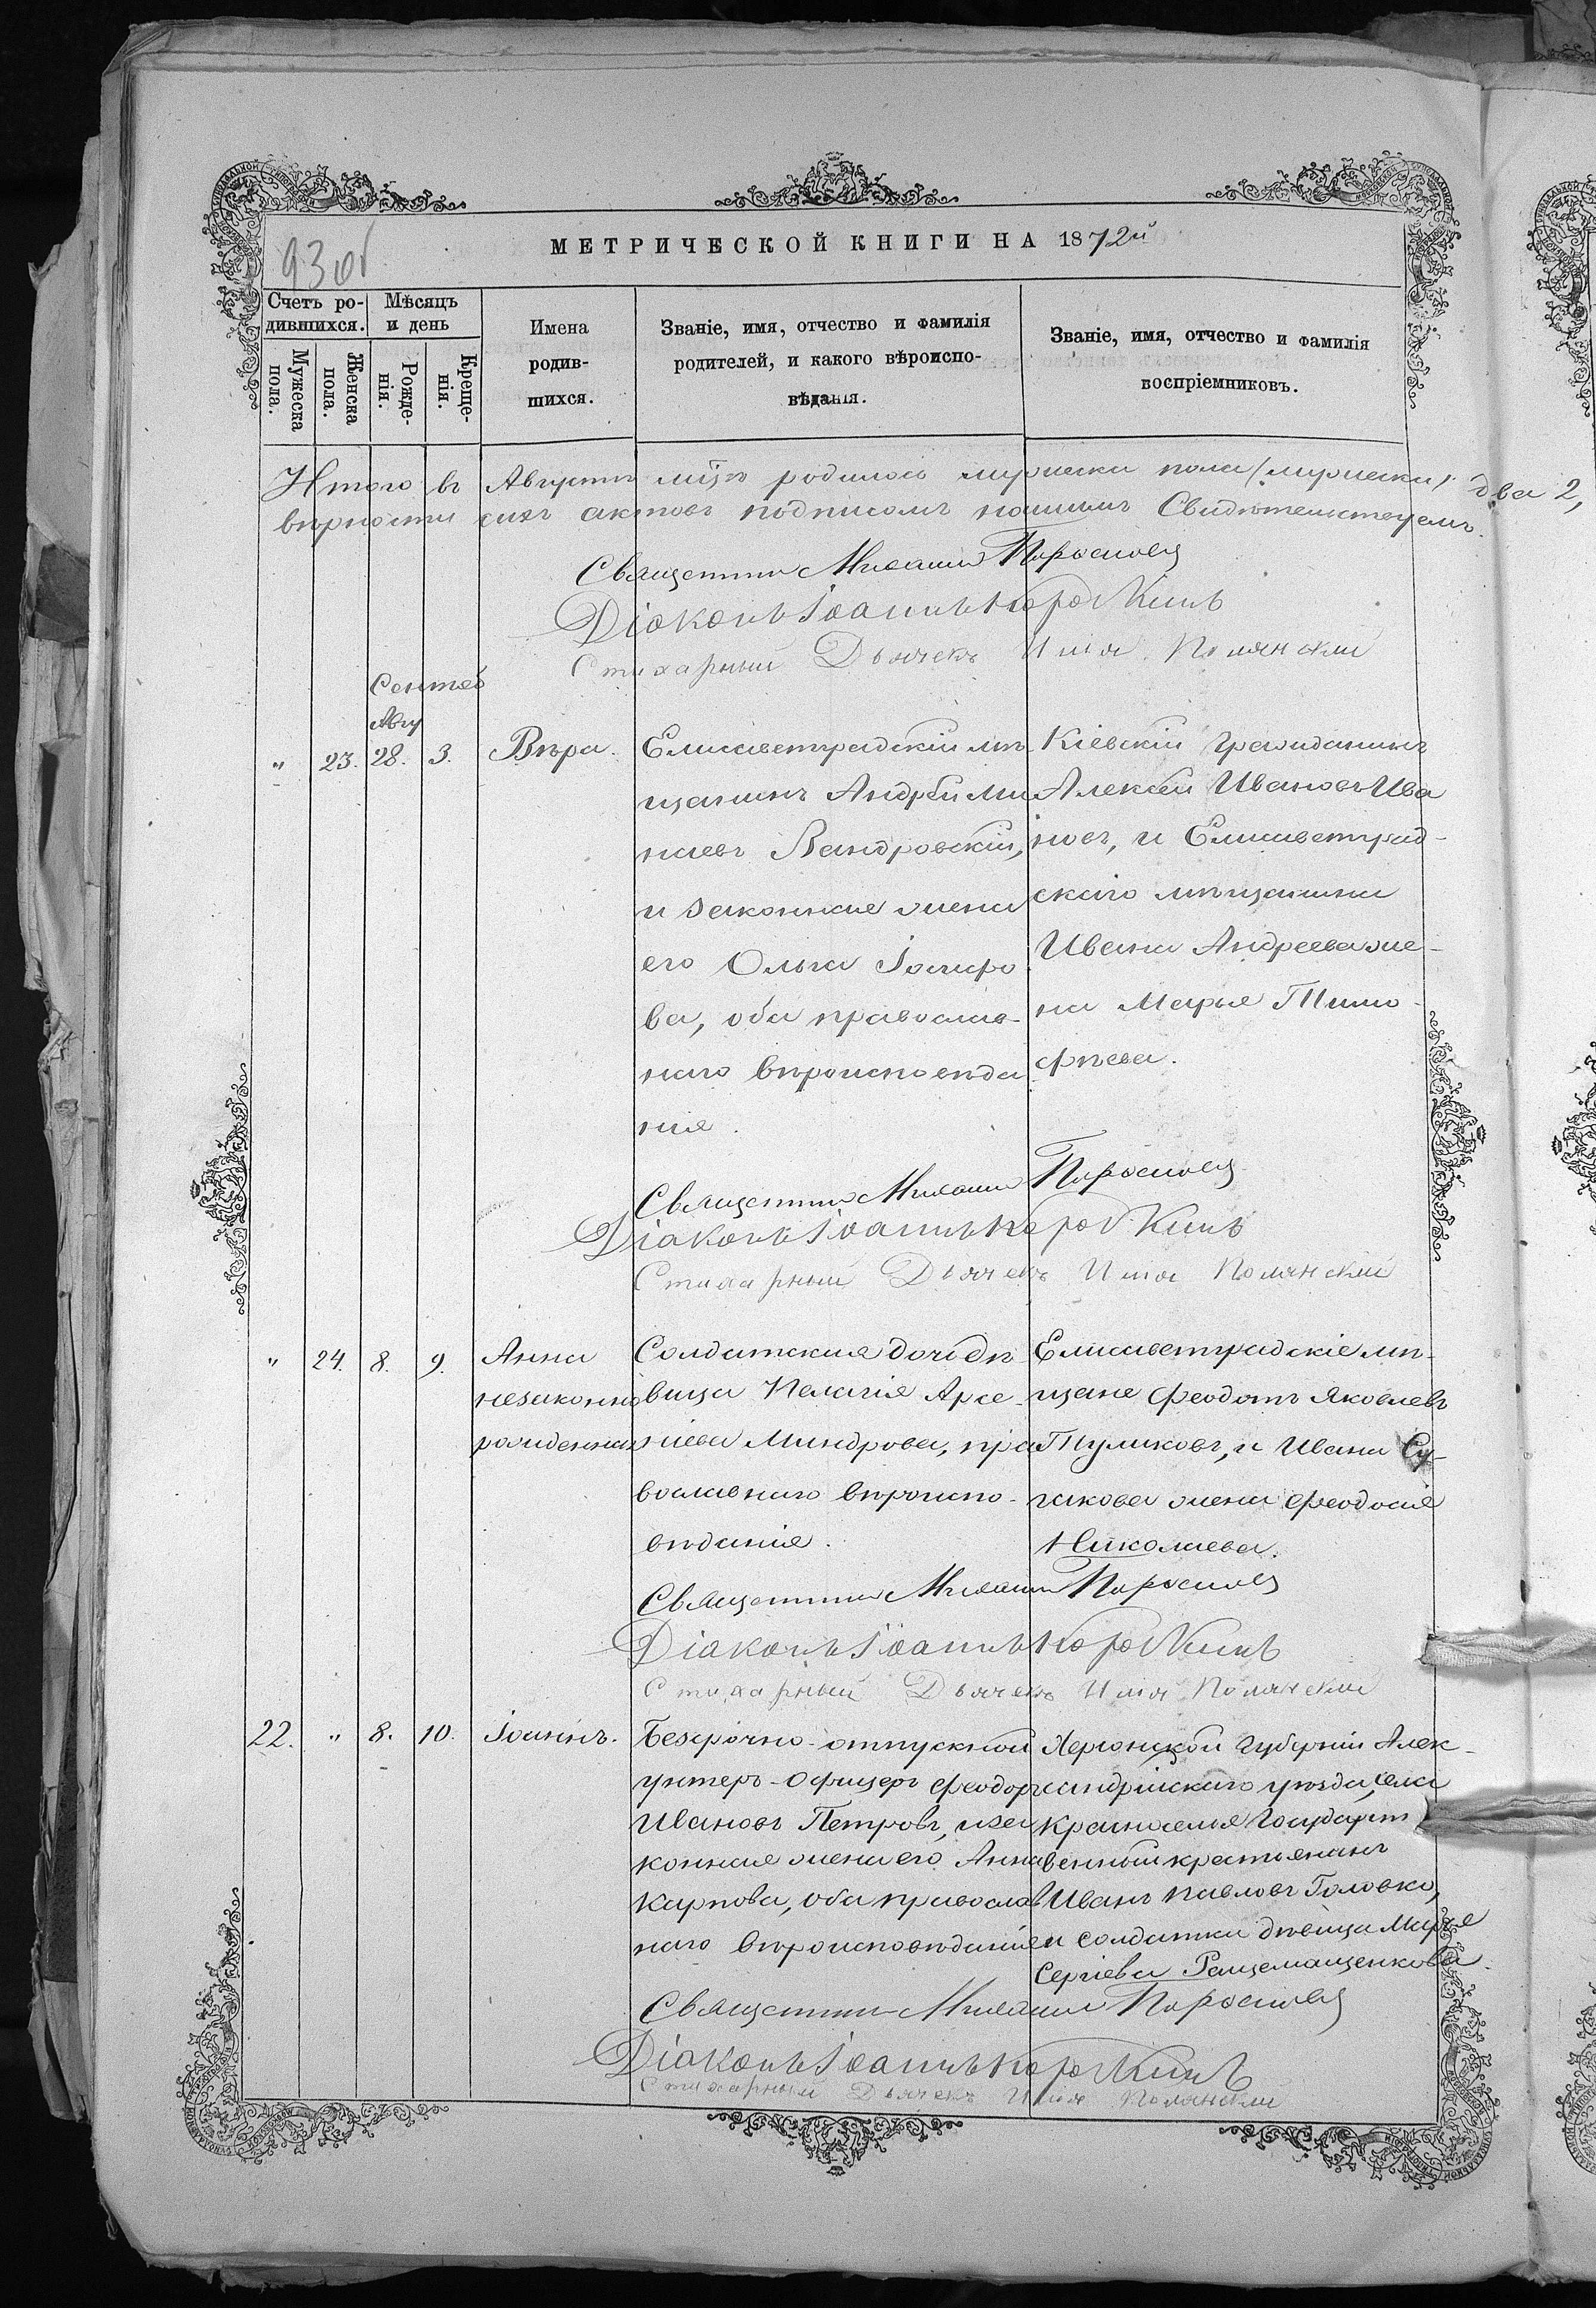 93 об
МЕТРИЧЕСКОЙ КНИГИ НА 1872й
Счетъ ро-
дившихся.
Мѣсяцъ
и день
Мужеска
пола.
Женска
пола.
Рожде-
нія.
Креще-
нія.
Имена
родив-
шихся.
Званіе, имя, отчество и фамилія
родителей, и какого вѣроиспо-
вѣданія.
Званіе, имя, отчество и фамилія
воспріемниковъ.
Итого въ Августѣ родилось два 2,
вѣрности сихъ актовъ подписомъ нашимъ Свидѣтельствуемъ.
Священникъ Михаилъ
Діаконъ Іоаннъ Коропкинъ
Стихарный Дьячекъ Илья Полянский
Сентяб
Авгу
" 23. 28. 3. Вѣра.
Елисаветградскій мѣ
щанинъ Андрей Ми
наевъ Вандровскій,
и законная жена
его Ольга
ва, оба православ-
наго вѣроисповѣда
нія.
Кіевскій гражданинъ
Алексѣй Ивановъ Ива
новъ, и Елисаветград-
скаго мѣщанина
Ивана Андреева же-
на Марья Тимо-
фѣева.
Священникъ Михаилъ
Діаконъ Іоаннъ Коропкинъ
Стихарный Дьячекъ Илья Полянский
" 24. 8. 9. Анна
незаконно
рожденная
Солдатская дочь дѣ
вица Пелагія Арсе-
ніева Миндрова, пра
вославнаго вѣроиспо-
вѣданія.
Елисаветградскіе мѣ-
щане Феодотъ Яковлевъ
Тумиковъ, и Ивана Су-
гакова жена Феодосія
Николаева.
Священникъ Михаилъ
Діаконъ Іоаннъ Коропкинъ
Стихарный Дьячекъ Илья Полянский
22. " 8. 10. Іоаннъ.
Безсрочно-отпускной
унтеръ-Офицеръ Феодоръ
Ивановъ Петровъ, и за
конная жена его Анна
Карпова, оба православ
наго вѣроисповѣданія
Херсонской Губерніи Алек-
сандрійскаго уѣзда, села
Красноселья Государст
венный крестьянинъ
Иванъ Павловъ Головко,
и солдатка дѣвица Марья
Сергіева
Священникъ Михаилъ
Діаконъ Іоаннъ Коропкинъ
Стихарный Дьячекъ Илья Полянский